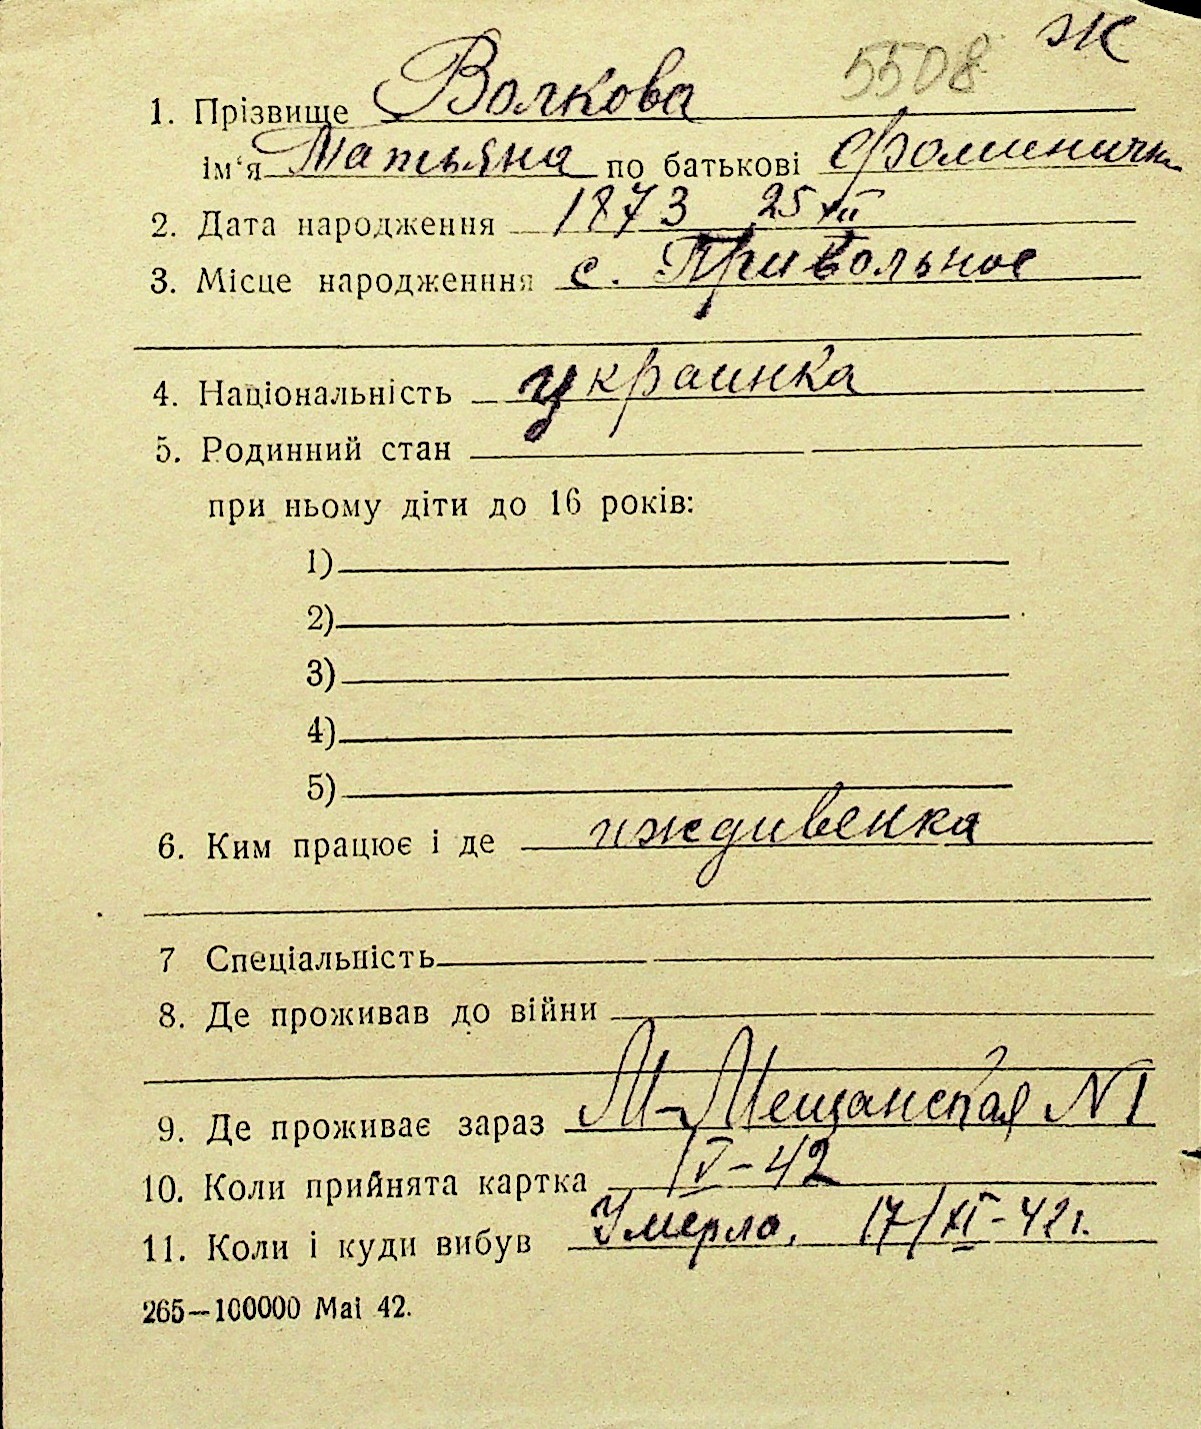 Ж
5508
1. Прізвище Волкова
ім‘я Татьяна по батькові Фоминична
2. Дата народження 1873 25 XII
3. Місце народженння с. Привольное
4. Національність украинка
5. Родинний стан
при ньому діти до 16 років:
1)
2)
3)
4)
5)
6. Ким працює і де иждивенка
7 Спеціальність
8. Де проживав до війни
9. Де проживає зараз М-Мещанская N 1
10. Коли прийнята картка /V-42
11. Коли і куди вибув Умерла. 17/XI-42г.
265—100000 Mai 42.